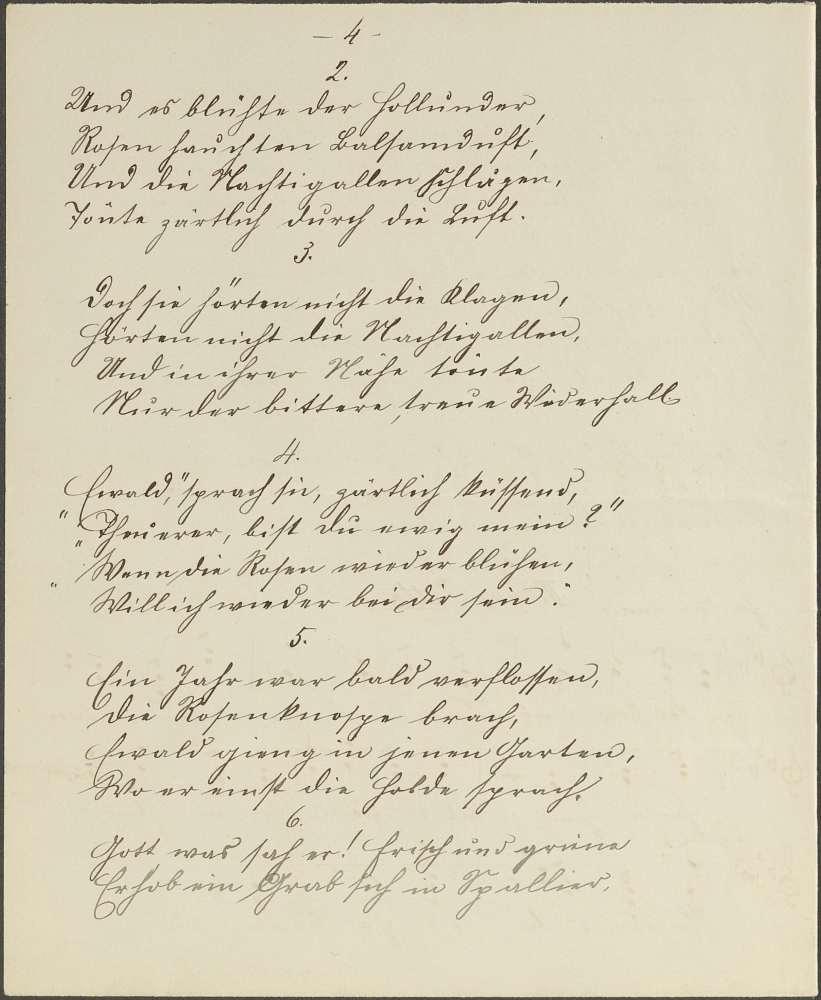 – 4 –
2.
Und es blühte der Hollunder,
Rosen hauchten Balsamduft,
Und die Nachtigallen schlugen,
Tönte zärtlich durch die Luft.
3.
Doch sie hörten nicht die Klagen,
Hörten nicht die Nachtigallen,
Und in ihrer Nähe tönte
Nur der bittere, treue Wiederhall
4.
„Ewald,“ sprach sie, zärtlich küssend,
„Theuerer, bist du ewig mein?“
„Wenn die Rosen wieder blühen,
Will ich wieder bei dir sein.“
5.
Ein Jahr war bald verflossen,
Die Rosenknospe brach,
Ewald gieng in jenen Garten,
Wo er einst die Holde sprach.
6.
Gott, was sah er! Frisch und grüne
Erhob ein Grab sich in Spallier,